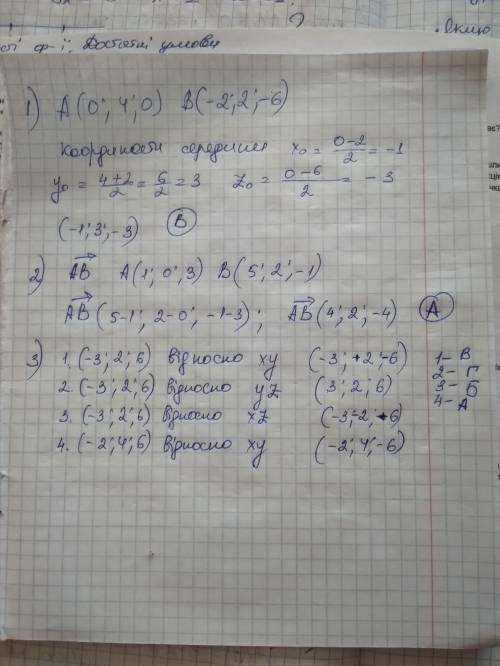 ті ф-ї: Достатні умови
якщо
1) A(0; 4; 0) B(-2; 2; -6)
Координати середини x₀ = (0-2)/2 = -1
y₀ = (4+2)/2 = 6/2 = 3 z₀ = (0-6)/2 = -3
(-1; 3; -3) В
2) AB→ A(1; 0; 3) B(5; 2; -1)
AB→(5-1; 2-0; -1-3); AB→(4; 2; -4) А
3) 1. (-3; 2; 6) відносно xy (-3; +2; -6) 1- В
2. (-3; 2; 6) відносно yz (3; 2; 6) 2- Г
3. (-3; 2; 6) відносно xz (-3; -2; +6) 3- Б
4. (-2; 4; 6) відносно xy (-2; 4; -6) 4- А